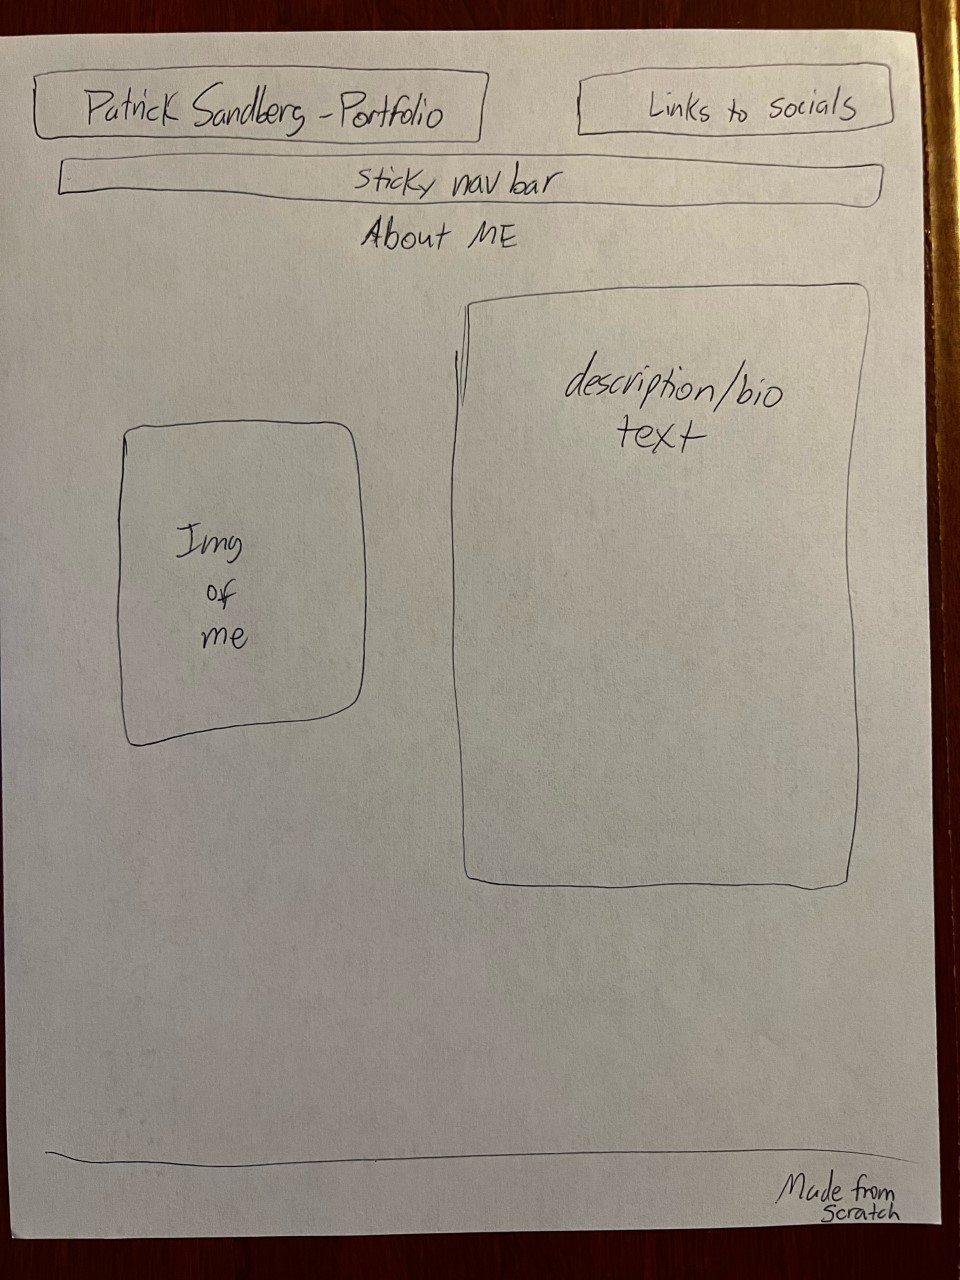 Patrick Sandberg - Portfolio
Links to socials
Sticky nav bar
About ME
description/bio
text
Img
of
me
Made from
Scratch